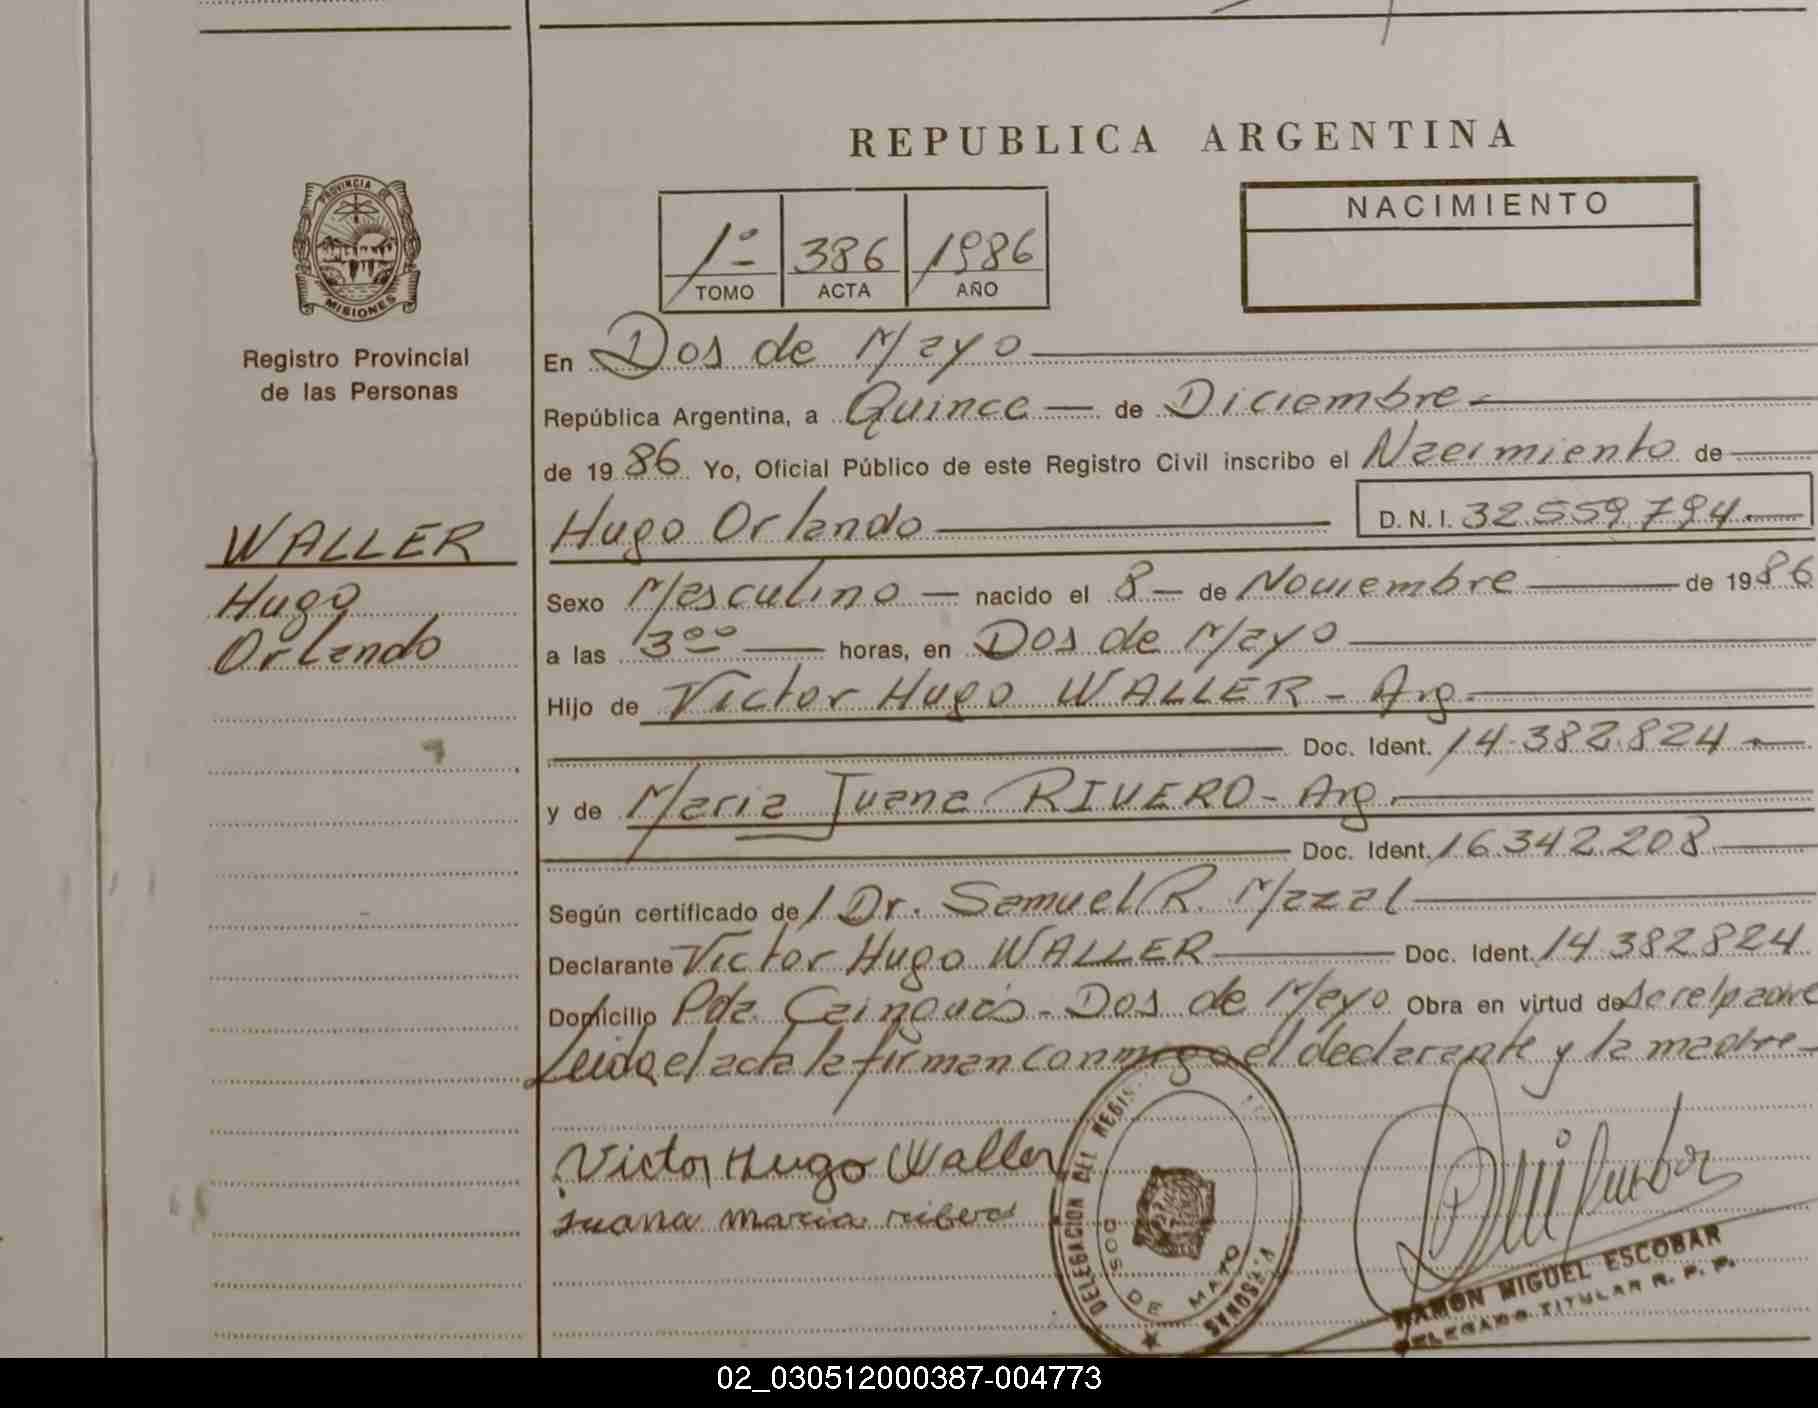 REPUBLICA ARGENTINA
PROVINCIA DE
MISIONES
Registro Provincial
de las Personas
1º 386 1986
TOMO ACTA AÑO
NACIMIENTO
En Dos de Mayo
República Argentina, a Quince de Diciembre
de 1986 Yo, Oficial Público de este Registro Civil inscribo el Nacimiento de
WALLER
Hugo
Orlando
Hugo Orlando D. N. I. 32.559.794
Sexo Masculino nacido el 8 de Noviembre de 1986
a las 3 00 horas, en Dos de Mayo
Hijo de Victor Hugo WALLER - Arg.
Doc. Ident. 14.382.824
y de Maria Juana RIVERO - Arg.
Doc. Ident. 16.342.208
Según certificado de Dr. Samuel R. Mazal
Declarante Victor Hugo WALLER Doc. Ident. 14.382.824
Domicilio Pda. Cainguás - Dos de Mayo Obra en virtud de ser el padre
Leida el acta la firman conmigo el declarante y la madre
Victor Hugo Waller
Juana maria ribero
DELEGACION DEL REGIS
PERSONAS
DOS DE MAYO
RAMON MIGUEL ESCOBAR
DELEGADO TITULAR R. P. P.
02_030512000387-004773